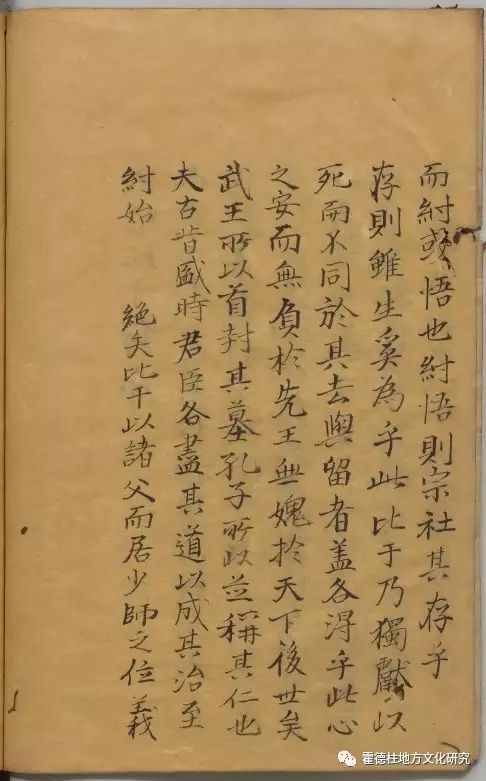 而紂或悟也紂悟則宗社其存乎
存則雖生奚為乎此比于乃獨獻以
死而不同於其去與留者盖各得乎此心
之安而無負於先王無媿於天下後世矣
武王所以首封其墓孔子所以並稱其仁也
夫古昔盛時君臣各盡其道以成其治至
紂始　絕矣比干以諸父而居少師之位義
霍德柱地方文化研究